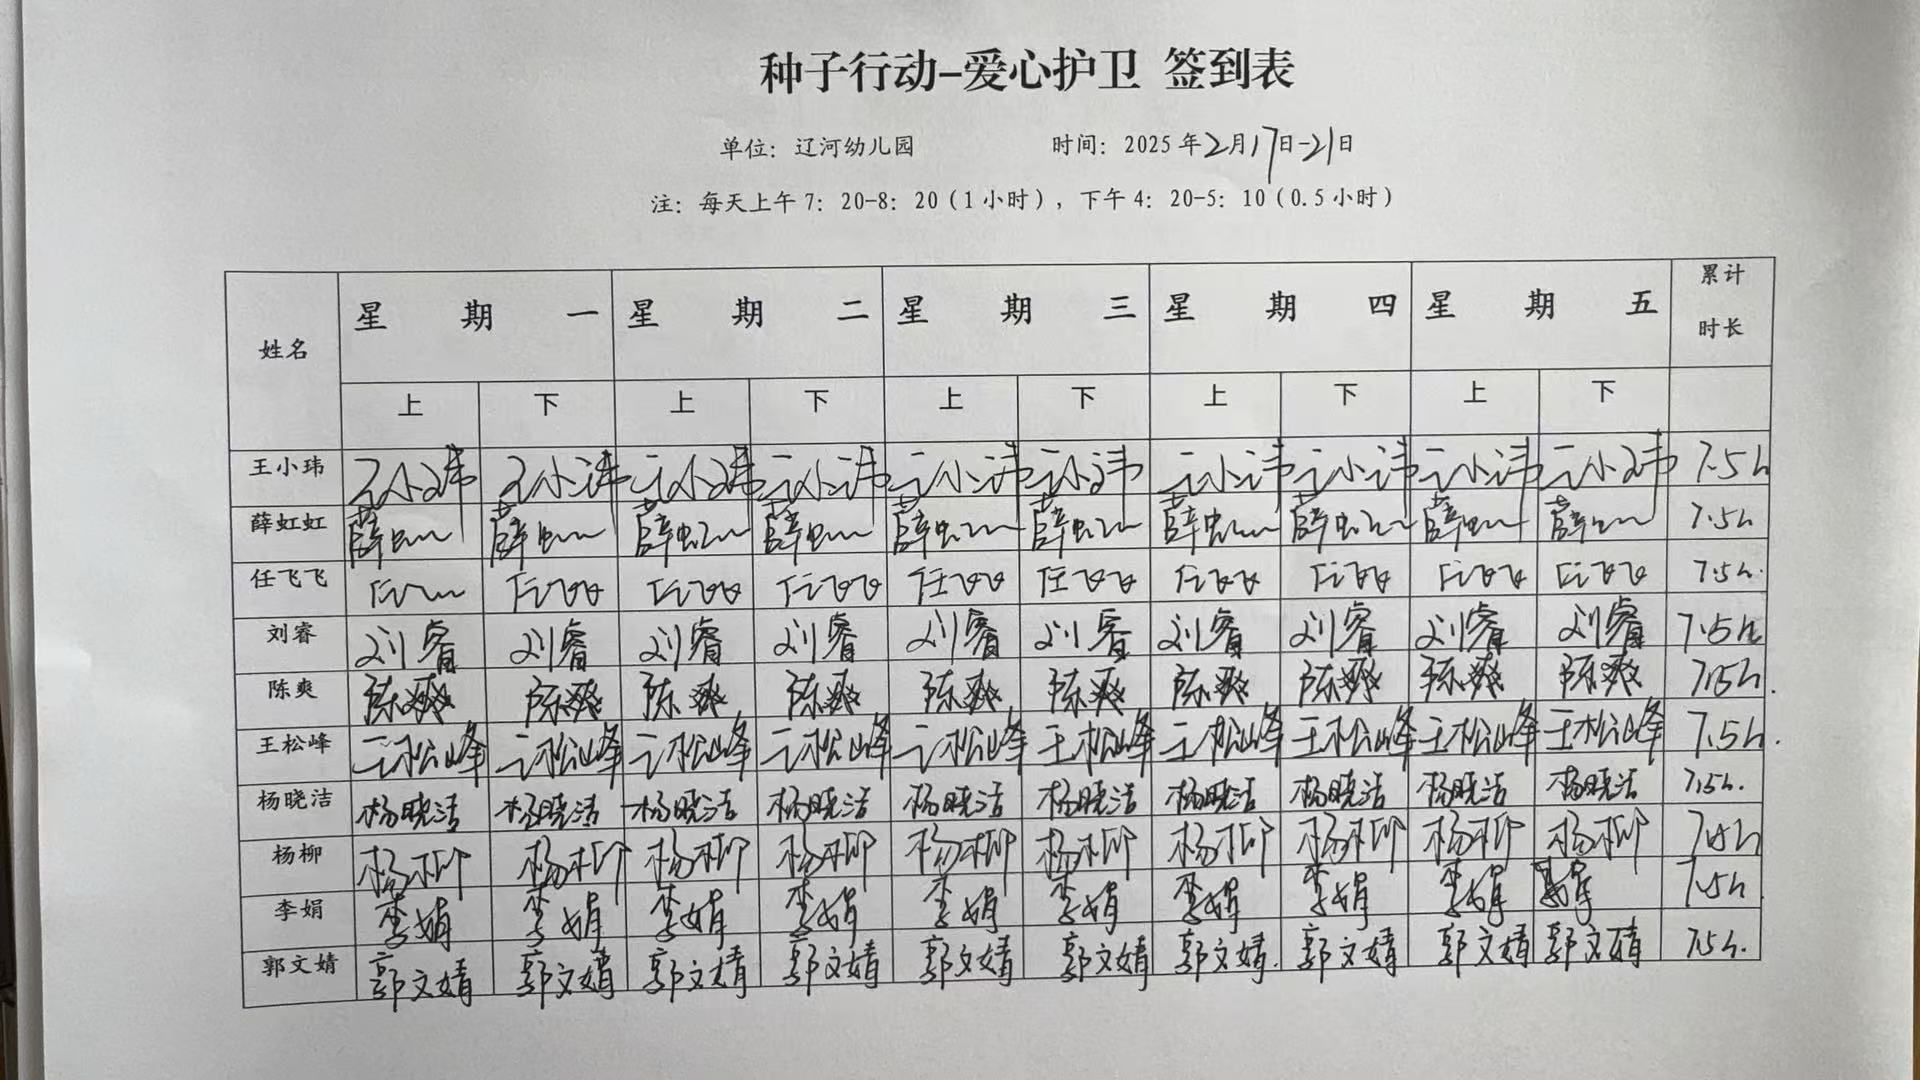 种子行动-爱心护卫 签到表
单位：辽河幼儿园 时间：2025年2月17日-21日
注：每天上午7：20-8：20（1小时），下午4：20-5：10（0.5小时）
姓名 星期一 星期二 星期三 星期四 星期五 累计时长
上 下 上 下 上 下 上 下 上 下
王小玮 王小玮 王小玮 王小玮 王小玮 王小玮 王小玮 王小玮 王小玮 王小玮 王小玮 7.5h
薛虹虹 薛虹 薛虹 薛虹 薛虹 薛虹 薛虹 薛虹 薛虹 薛虹 薛虹 7.5h
任飞飞 任飞飞 任飞飞 任飞飞 任飞飞 任飞飞 任飞飞 任飞飞 任飞飞 任飞飞 任飞飞 7.5h.
刘睿 刘睿 刘睿 刘睿 刘睿 刘睿 刘睿 刘睿 刘睿 刘睿 刘睿 7.5h
陈爽 陈爽 陈爽 陈爽 陈爽 陈爽 陈爽 陈爽 陈爽 陈爽 陈爽 7.5h.
王松峰 王松峰 王松峰 王松峰 王松峰 王松峰 王松峰 王松峰 王松峰 王松峰 王松峰 7.5h.
杨晓洁 杨晓洁 杨晓洁 杨晓洁 杨晓洁 杨晓洁 杨晓洁 杨晓洁 杨晓洁 杨晓洁 杨晓洁 7.5h.
杨柳 杨柳 杨柳 杨柳 杨柳 杨柳 杨柳 杨柳 杨柳 杨柳 杨柳 7.5h
李娟 李娟 李娟 李娟 李娟 李娟 李娟 李娟 李娟 李娟 李娟 7.5h
郭文婧 郭文婧 郭文婧 郭文婧 郭文婧 郭文婧 郭文婧 郭文婧 郭文婧 郭文婧 郭文婧 7.5h.